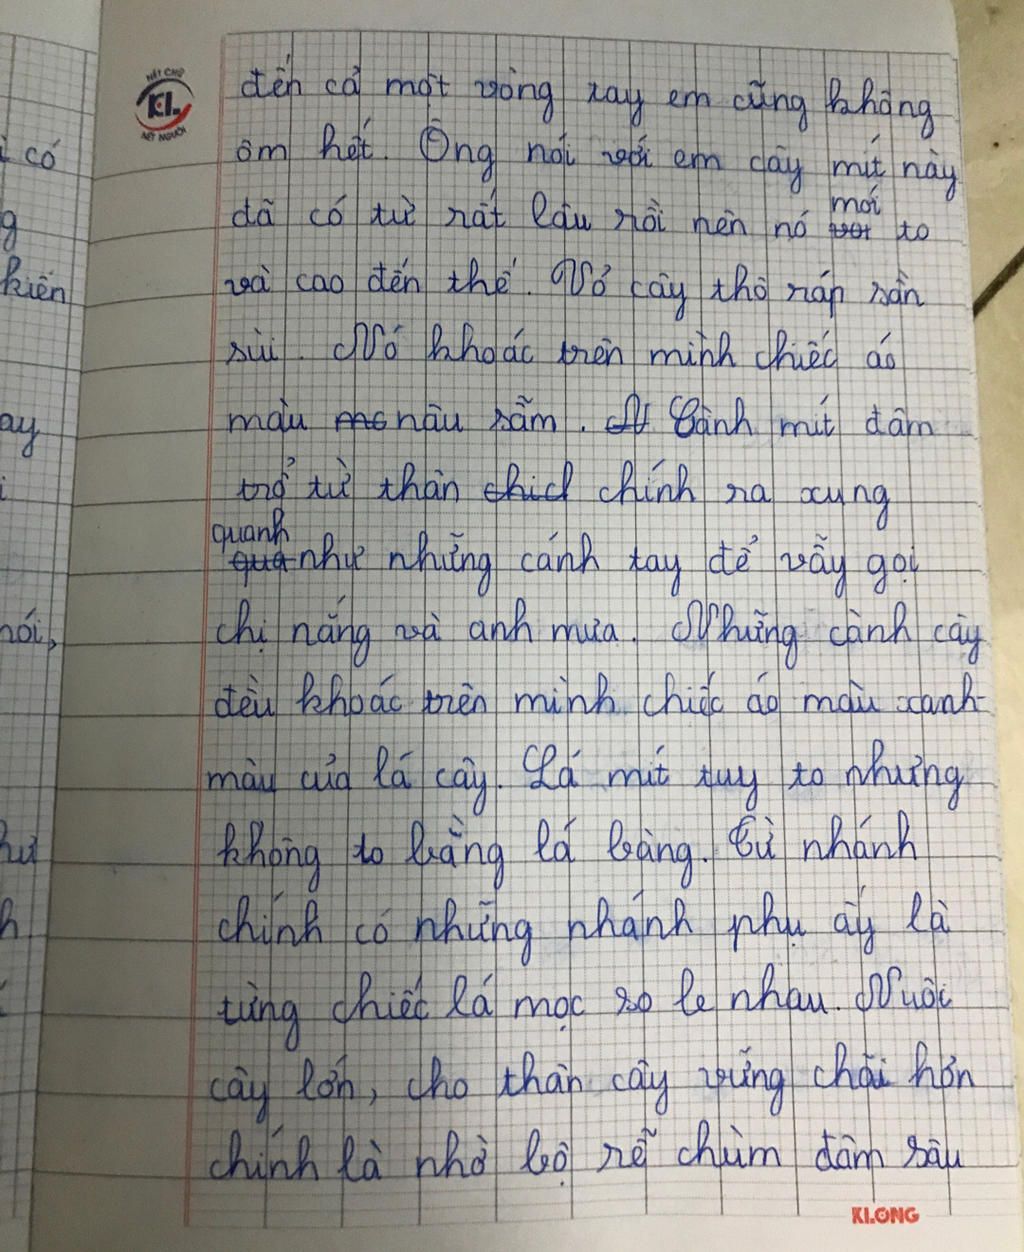 NÉT CHỮ
KL
NẾT NGƯỜI
đến cả một vòng tay em cũng không
ôm hết. Ông nói với em cây mít này
đã có từ rất lâu rồi nên nó mới to
và cao đến thế. Vỏ cây thô ráp sần
sùi. Nó khoác trên mình chiếc áo
màu nâu sẫm. Cành mít đâm
trổ từ thân chính ra xung
quanh như những cánh tay để vẫy gọi
chị nắng và anh mưa. Những cành cây
đều khoác trên mình chiếc áo màu xanh
màu của lá cây. Lá mít tuy to nhưng
không to bằng lá bàng. Từ nhánh
chính có những nhánh phụ ấy là
từng chiếc lá mọc so le nhau. Nuôi
cây lớn, cho thân cây vững chãi hơn
chính là nhờ bộ rễ chùm đâm sâu
KLONG
i có
g
kiến
ay
i
nói,
h